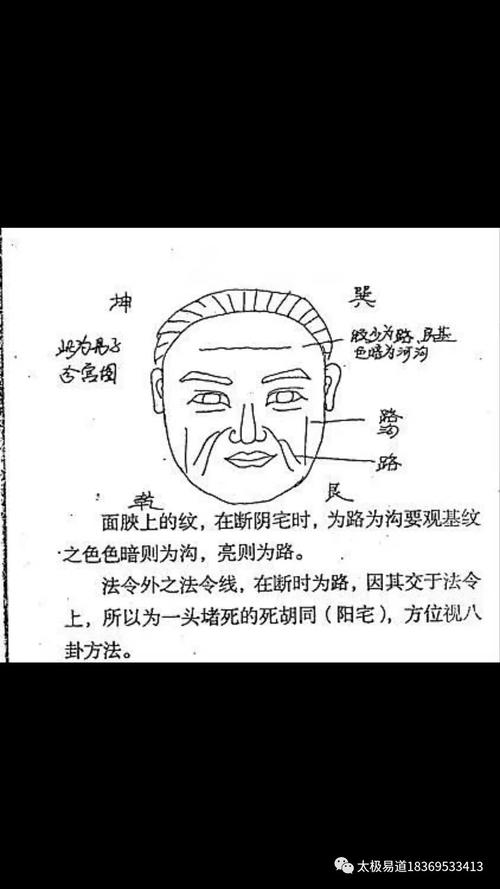 坤
巽
此为男子
各宫图
纹少为路、
色暗为河沟
路
沟
路
乾
艮
面腴上的纹，在断阴宅时，为路为沟要观基纹
之色色暗则为沟，亮则为路。
法令外之法令线，在断时为路，因其交于法令
上，所以为一头堵死的死胡同（阳宅），方位视八
卦方法。
太极易道18369533413